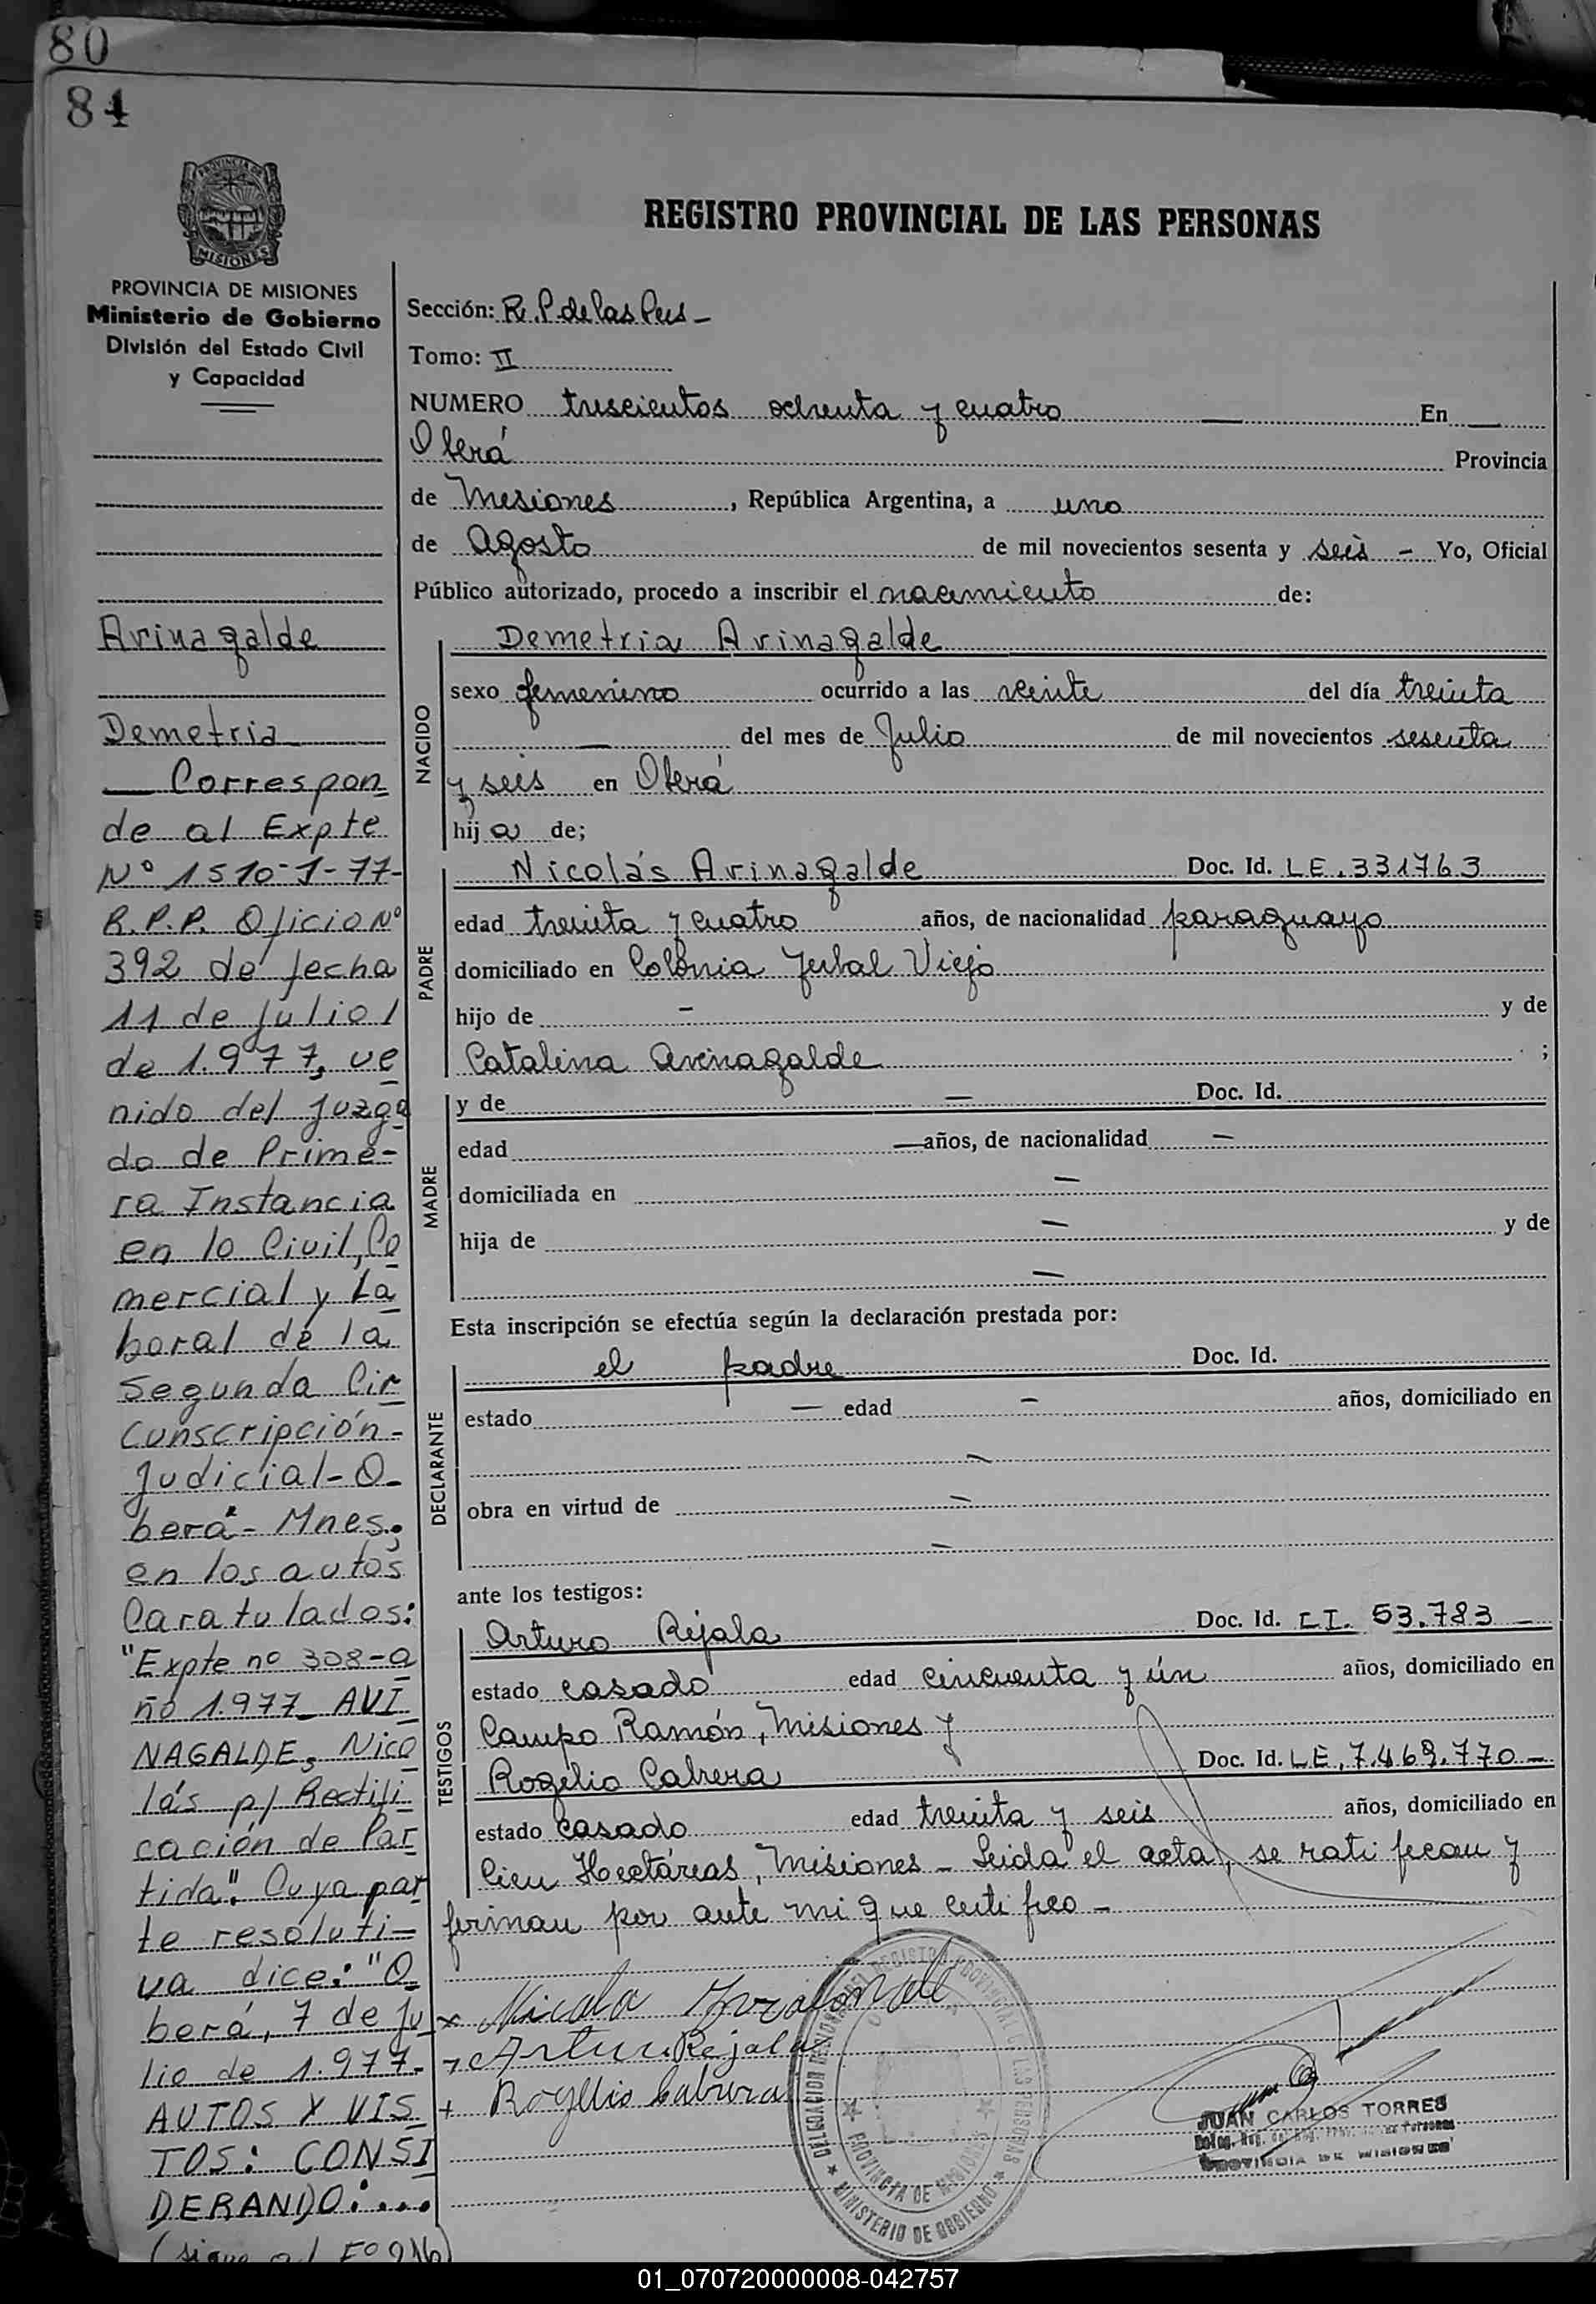 80
84
PROVINCIA DE
MISIONES
PROVINCIA DE MISIONES
Ministerio de Gobierno
División del Estado Civil
y Capacidad
Avinagalde
Demetria
— Correspon
de al Expte
Nº 1510-J-77-
R.P.P. Oficio Nº
392 de fecha
11 de Julio /
de 1.977, ve
nido del Juzga
do de Prime-
ra Instancia
en lo Civil, Co
mercial y La
boral de la
Segunda Cir
cunscripción-
Judicial-O-
berá- Mnes.,
en los autos
Caratulados:
"Expte nº 308-a
ño 1.977_ AVI
NAGALDE, Nico
lás p/ Rectifi
cación de Par
tida". Cuya par
te resoluti-
va dice: "O
berá, 7 de Ju
lio de 1.977.-
AUTOS Y VIS
TOS: CONSI
DERANDO:...
(sigue al Fº 216)
REGISTRO PROVINCIAL DE LAS PERSONAS
Sección: R. P. de las Pers -
Tomo: II
NUMERO trescientos ochenta y cuatro — En —
Oberá Provincia
de Misiones, República Argentina, a uno
de Agosto de mil novecientos sesenta y seis - Yo, Oficial
Público autorizado, procedo a inscribir el nacimiento de:
NACIDO
Demetria Avinagalde
sexo femenino ocurrido a las veinte del día treinta
— del mes de Julio de mil novecientos sesenta
y seis en Oberá
hij a de;
PADRE
Nicolás Avinagalde Doc. Id. LE. 331763
edad treinta y cuatro años, de nacionalidad paraguayo
domiciliado en Colonia Yerbal Viejo
hijo de - y de
Catalina Avinagalde ;
MADRE
y de — Doc. Id.
edad — años, de nacionalidad —
domiciliada en —
hija de — y de
—
Esta inscripción se efectúa según la declaración prestada por:
DECLARANTE
el padre Doc. Id.
estado — edad — años, domiciliado en
—
obra en virtud de —
—
ante los testigos:
TESTIGOS
Arturo Rejala Doc. Id. C.I. 53.783 -
estado casado edad cincuenta y ún años, domiciliado en
Campo Ramón, Misiones y
Rogelio Cabrera Doc. Id. LE. 7.469.770 -
estado casado edad treinta y seis años, domiciliado en
Cien Hectáreas, Misiones - Leida el acta, se ratifican y
firman por ante mi que certifico -
x Nicola
Arturo Rejala
+ Rogelio Cabrera
DELEGACION REGIONAL DEL REGISTRO PROVINCIAL DE LAS PERSONAS
PROVINCIA DE MISIONES
MINISTERIO DE GOBIERNO
JUAN CARLOS TORRES
PROVINCIA DE MISIONES
01_070720000008-042757